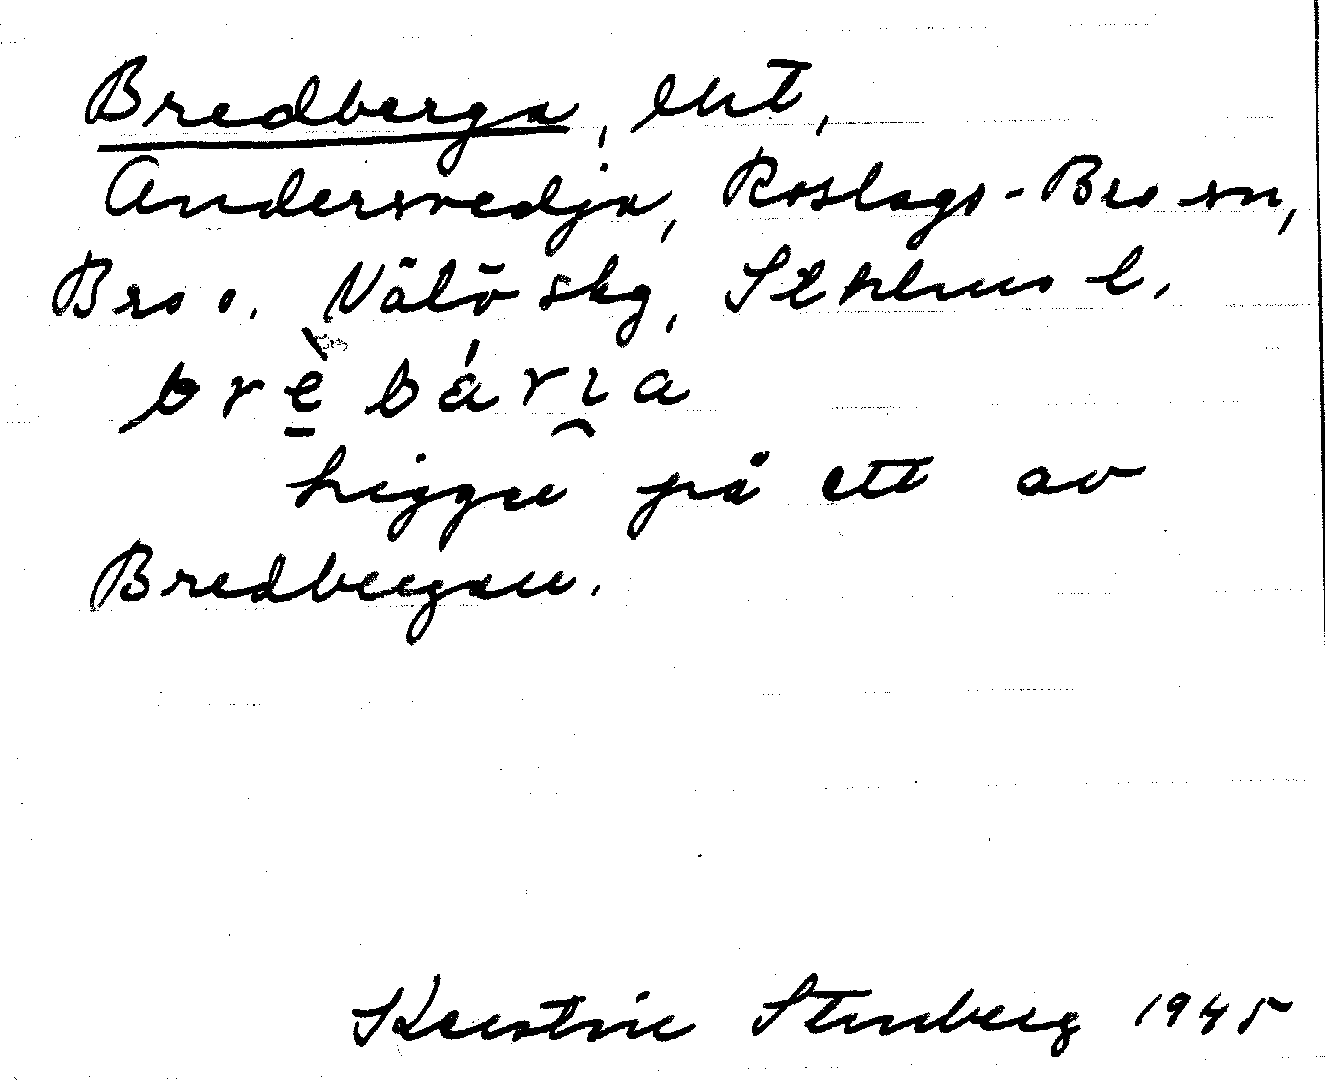 Bredberga, lht,
Andersvedja, Roslags-Bro sn,
Bro o. Vätö skg, Sthlms l.
brè̱ bárı̯a
ligger på ett av
Bredbergen.
Kerstin Stenberg 1945